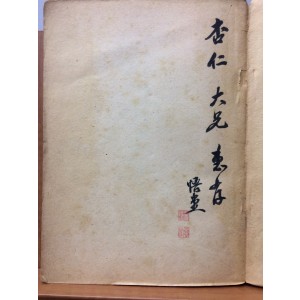 杏仁大兄惠存
悟堂